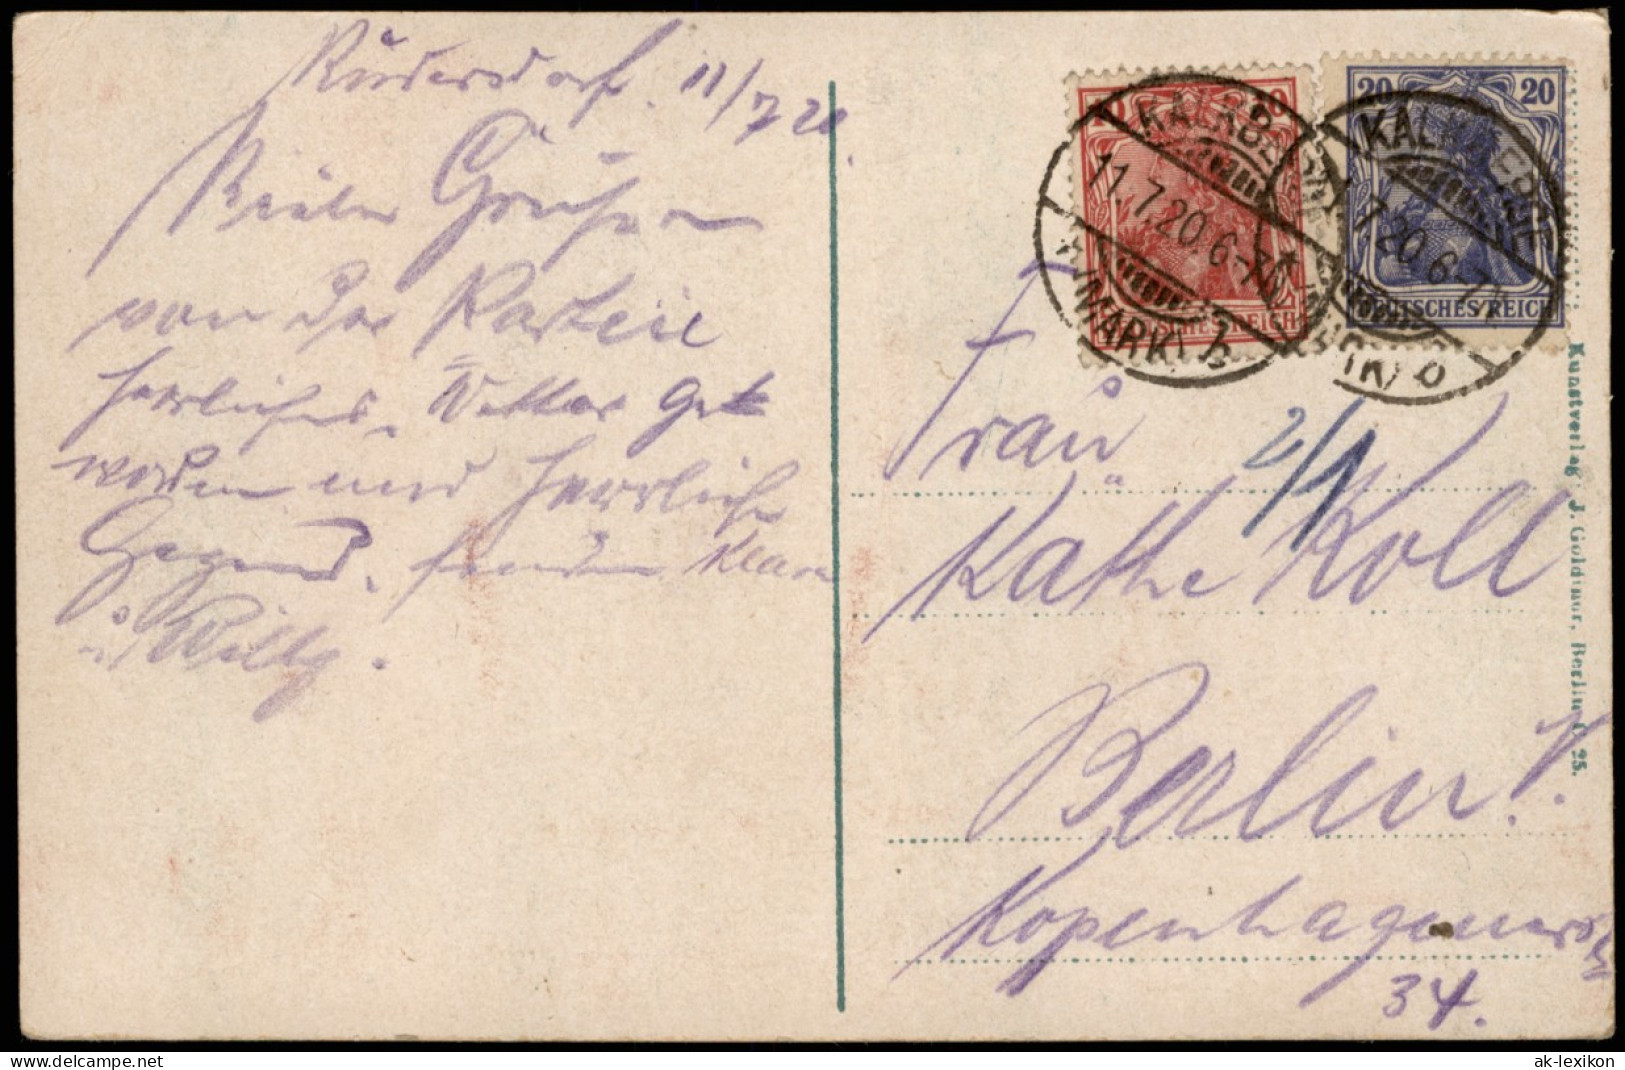 Rüdersdorf. 11/7 20.
Viele Grüße
von der Partie
herrliches Wetter ge
worden und herrliche
Gegend. Klara
u. Willy.
10 10
DEUTSCHES REICH
20 20
DEUTSCHES REICH
KALKBERGE
11.7.20. 6-7N
(MARK) b
KALKBERGE
11.7.20. 6-7N
(MARK) b
Frau
2/1
Käthe Koll
Berlin N.
Kopenhagenerstr
34.
Kunstverlag J. Goldiner, Berlin C 25.
www.ansichtskartenversand.com
ak-lexikon